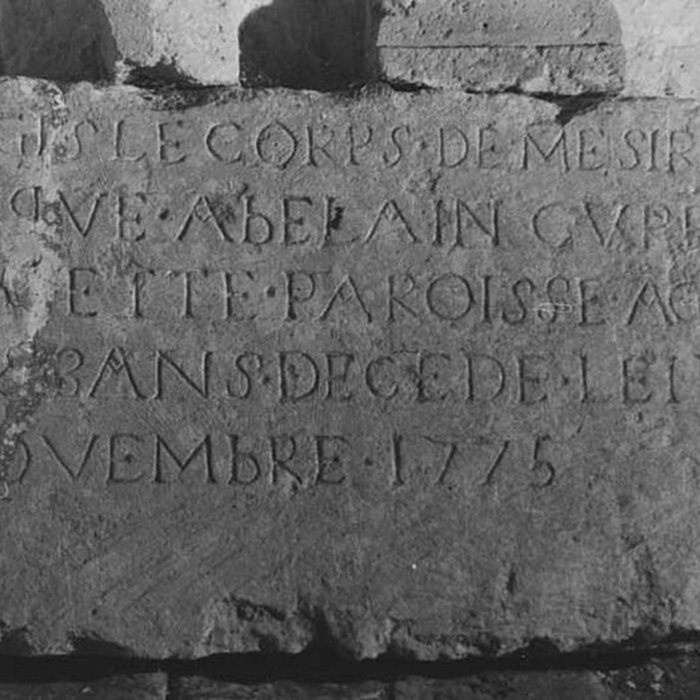 GIS LE CORPS·DE MESIR
QVE·AbELAIN CVRE
CETTE·PAROISSE·AG
ANS·DECEDE·LE
OVEMbRE·1775